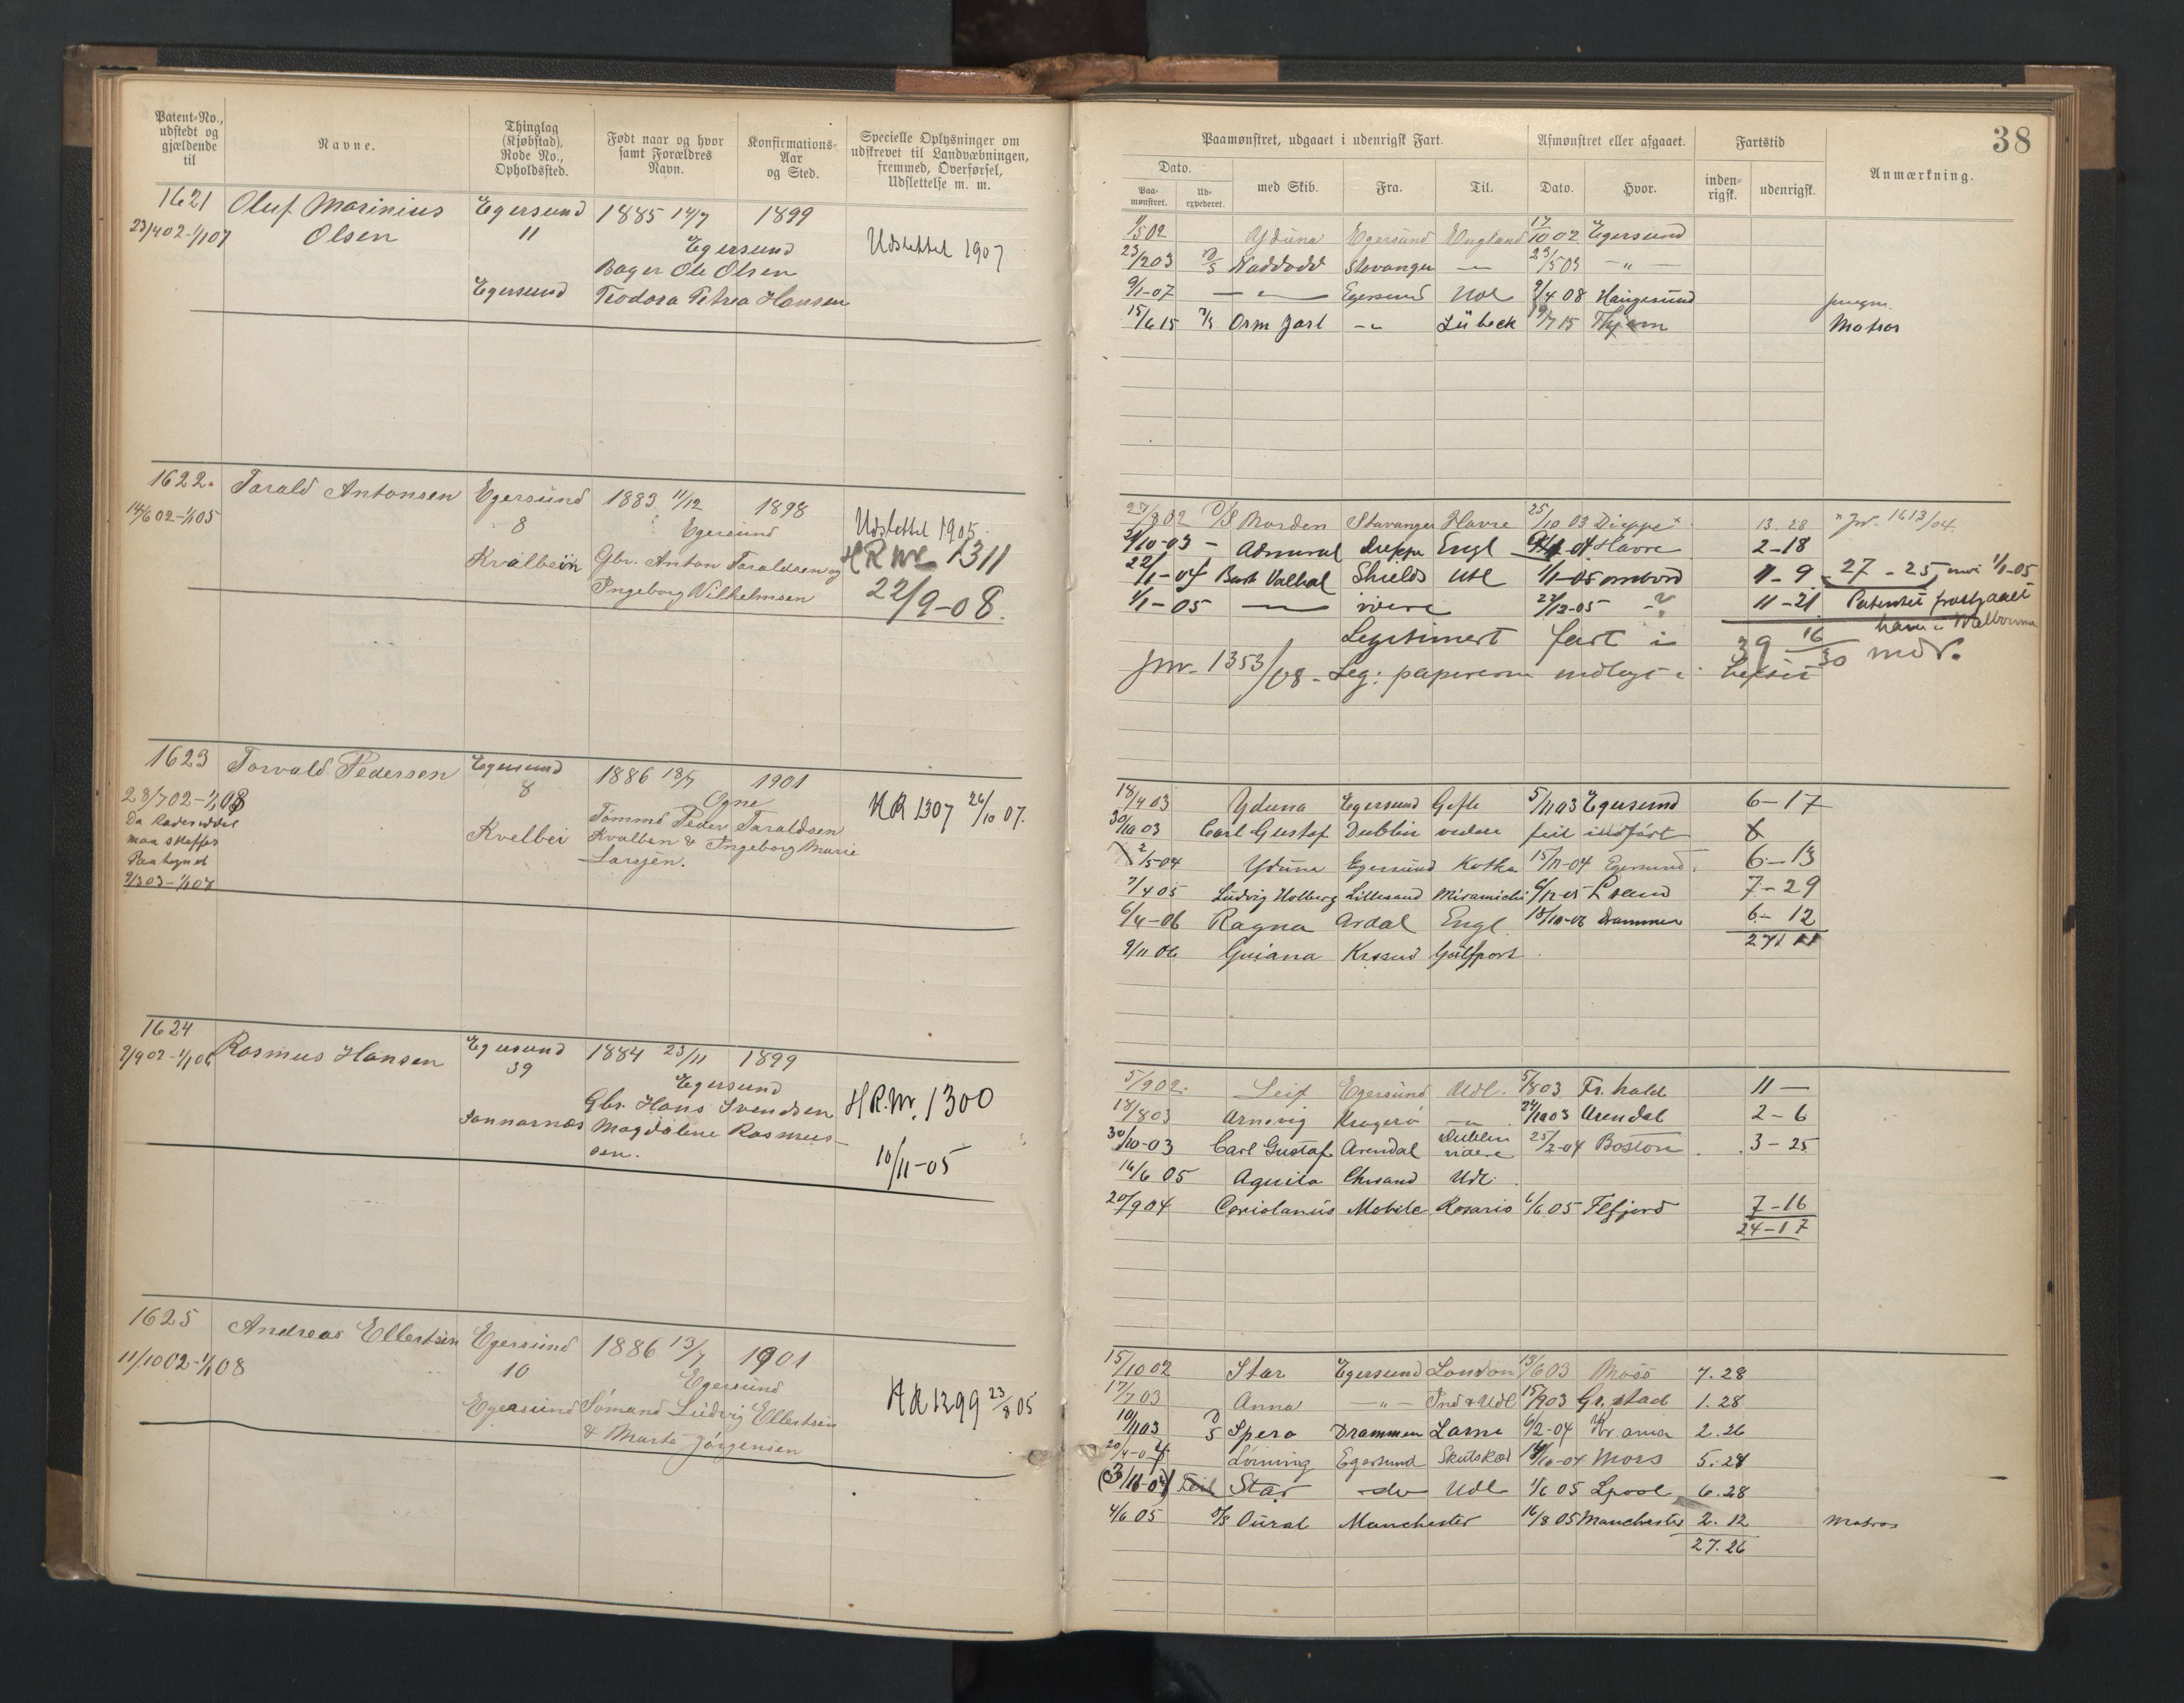 Patent-No., udstedt og gjældende til
Navne.
Thinglag (Kjøbstad), Rode No., Opholdssted.
Født naar og hvor samt Forældres Navn.
Konfirmations-Aar og Sted.
Specielle Oplysninger om udskrevet til Landvæbningen, fremmed, Overførsel, Udslettelse m. m.
1621 Oluf Marinius Egersund 1885 14/7 1899
23/4 02-1/1 07 Olsen 11 Egersund Udslettet 1907
Bager Ole Olsen
Egersund Teodora Petrea Hansen
1622. Tarald Antonsen Egersund 1883 11/12 1898
14/6 02-1/1 05 8 Egersund Udslettet 1905.
Kvalbein Gbr. Anton Taraldsen og HR No 1311
Ingeborg Vilhelmsen 22/9-08.
1623 Torvald Pedersen Egersund 1886 18/7 1901
28/7 02-1/1 08 8 Ogne HR 1307 26/10 07.
Da Rodeseddel
maa skaffes
Kvelbei Tømmd Peder Taraldsen
Kvalben & Ingeborg Marie
Larsen.
9/3 03-1/1 07
1624 Rasmus Hansen Egersund 1884 23/11 1899
9/9 02-1/1 06 39 Egersund
Gbr. Hans Svendsen HR.Nr. 1300
Sannarnes Magdalene Rasmus-
sen. 10/11-05
1625 Andreas Ellertsen Egersund 1886 13/7 1901
11/10 02-1/1 08 10 Egersund
Egersund Sømand Ludvig Ellertsen HR 1299 23/8 05
& Marta Jørgensen
38
Paamønstret, udgaaet i udenrigsk Fart.
Afmønstret eller afgaaet.
Fartstid
Anmærkning.
Dato.
Paa-mønstret.
Ud-expederet.
med Skib.
Fra.
Til.
Dato.
Hvor.
inden-rigsk.
udenrigsk.
1/5 02 Yduna Egersund England 17/10 02 Egersund
23/2 03 D/S Naddodd Stavanger — 23/5 03 — " —
9/1-07 — " — Egersund Udl 9/4 08 Haugesund
15/6 15 D/S Orm Jarl — " Lübeck 19/7 15 Matros
27/8 02 D/S Norden Stavanger Havre 25/10 03 Dieppe 13. 28 Jnr. 1613/04.
/10-03 — Admiral Dieppe Engl -04 Havre 2-18
22/1-04 Bark Valhal Shields Udl 1/1-05 ombord 11-9 27 - 25 1/1-05
1/1-05 — videre 22/12-05 11-21 Patentet
Legitimert fart i 39 16/30 mdr.
Jnr. 1353/08 - Leg: papirerne indlagt i heftet
18/4 03 Yduna Egersund Gefle 5/11 03 Egersund 6-17
30/10 03 Carl Gustaf Dublin videre feil indført
2/5-04 Yduna Egersund Kotka 15/11-04 Egersund 6-13
7/4 05 Ludvig Holberg Lillesand Miramichi 6/12-05 7-29
6/4-06 Ragna Ardal Engl. 18/10-06 Drammen 6- 12
9/11 06 Guiana Krssnd Gulfport
5/9 02. Leif Egersund Udl. 5/8 03 Fr. hald 11 —
18/8 03 Arnevig Kragerø — " 24/10 03 Arendal 2-6
30/10-03 Carl Gustaf Arendal Dublin videre 25/2-04 Boston 3-25
16/6 05 Aquila Chrsand Udl.
20/9 04 Coriolanus Mobile Rosario 6/6 05 Flfjord 7-16
24-17
15/10 02 Star Egersund London 13/6 03 Moss 7.28
17/7 03 Anna — " — Ind & Udl 15/9 03 Gr. stad 1.28
10/11 03 D/S Spero Drammen Larne 6/2-04 Kr. ania 2.26
20/4-04 Lørning Egersund 14/10-04 Moss 5.24
(3/11-04) Feil Star -do- Udl 1/6 05 Lpool 6.28
4/6 05 D/S Oural Manchester 16/8 05 Manchester 2.12 Matros
27.26